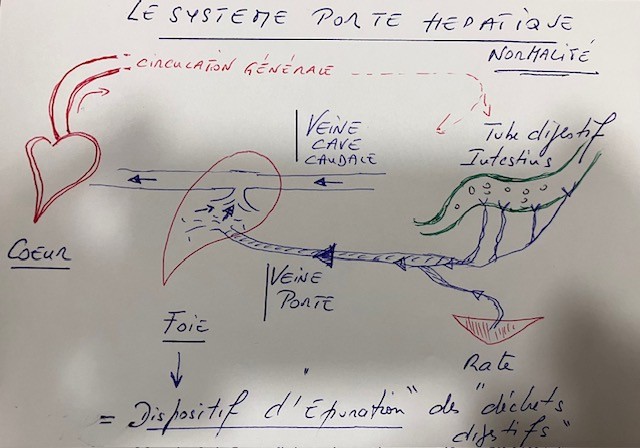 LE SYSTEME PORTE HEPATIQUE
NORMALITÉ
CIRCULATION GÉNÉRALE
VEINE
CAVE
CAUDALE
Tube digestif
Intestins
COEUR
VEINE
PORTE
FOIE
Rate
= Dispositif d'"Epuration" des "déchets
digestifs"